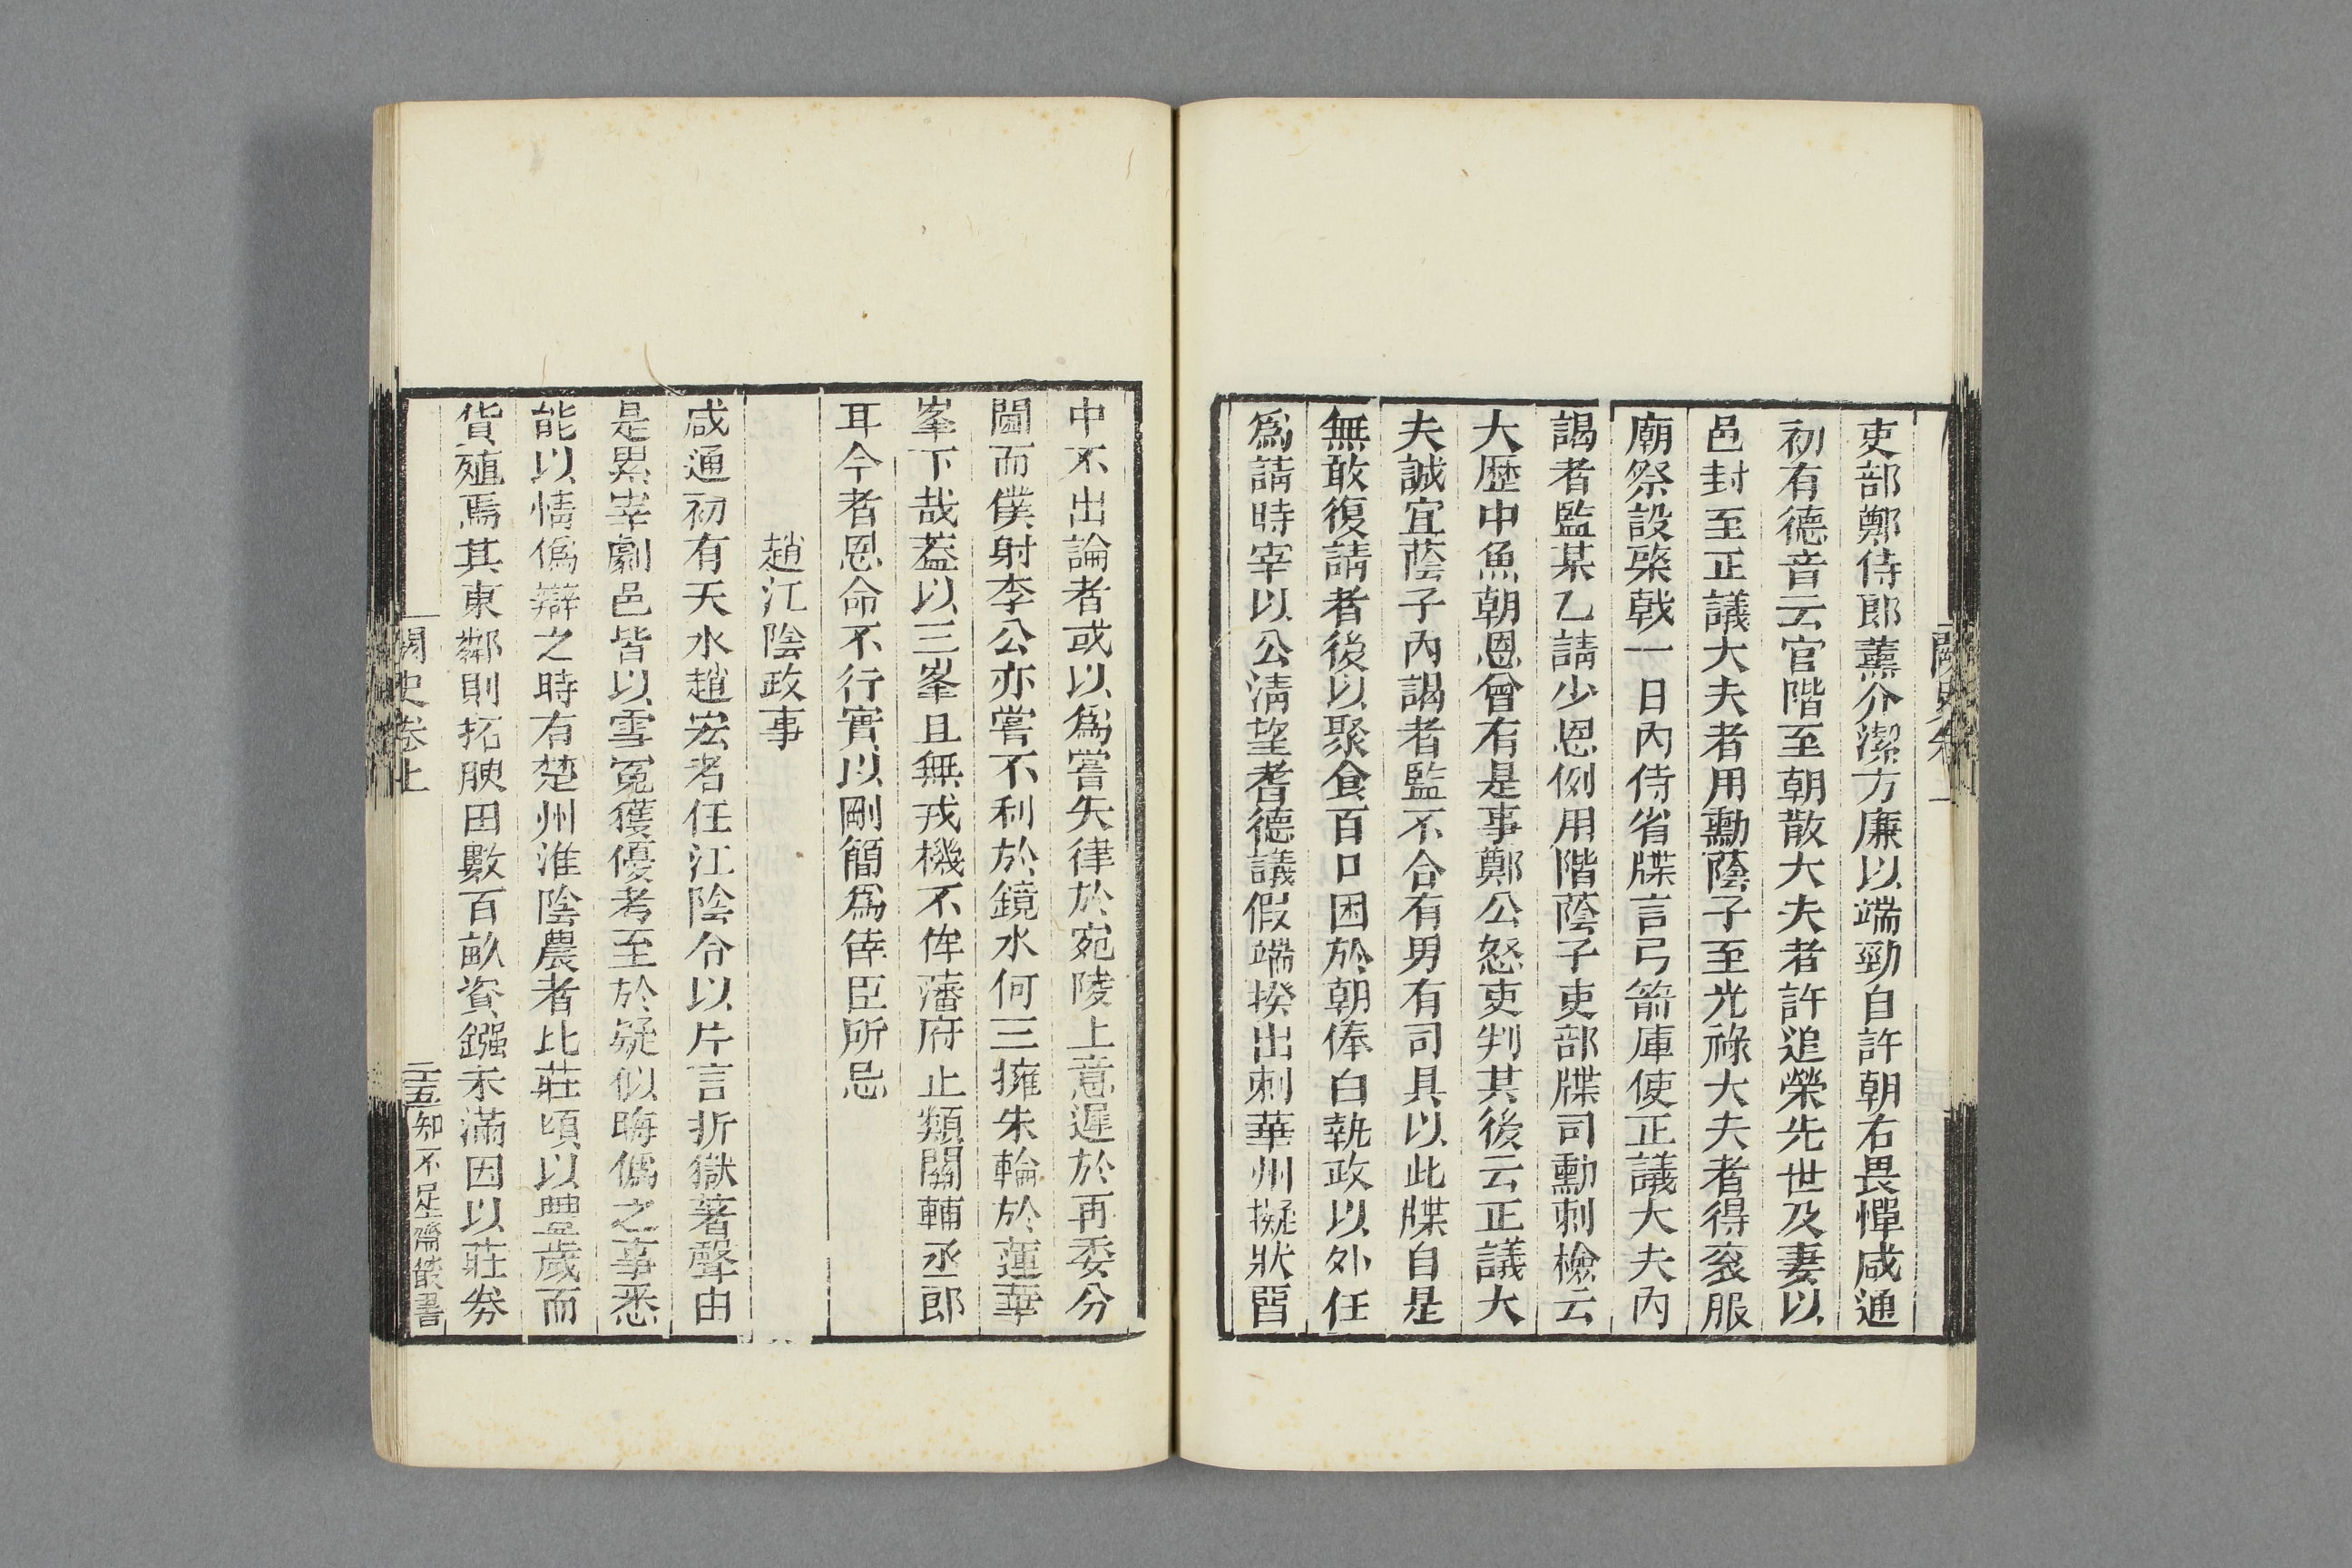 吏部鄭侍郎薰介潔方廉以端勁自許朝右畏憚咸通
初有德音云官階至朝散大夫者許追榮先世及妻以
邑封至正議大夫者用勳蔭子至光祿大夫者得衮服
廟祭設棨戟一日內侍省牒言弓箭庫使正議大夫內
謁者監某乙請少恩例用階蔭子吏部牒司勳刺檢云
大歷中魚朝恩曾有是事鄭公怒吏判其後云正議大
夫誠宜蔭子內謁者監不合有男有司具以此牒自是
無敢復請者後以聚食百口困於朝俸白執政以外任
為請時宰以公淸望耆德議假端揆出刺華州擬狀畱
中不出論者或以為嘗失律於宛陵上意遲於再委分
閫而僕射李公亦嘗不利於鏡水何三擁朱輪於蓮華
峯下哉葢以三峯且無戎機不侔藩府止類關輔丞郎
耳今者恩命不行實以剛簡為倖臣所忌
趙江陰政事
咸通初有天水趙宏者任江陰令以片言折獄著聲由
是累宰劇邑皆以雪冤獲優考至於疑似晦僞之事悉
能以情僞辯之時有楚州淮陰農者比莊頃以豐歲而
貨殖焉其東鄰則拓腴田數百畝資鏹未滿因以莊券
闕史卷上
二五
知不足齋叢書